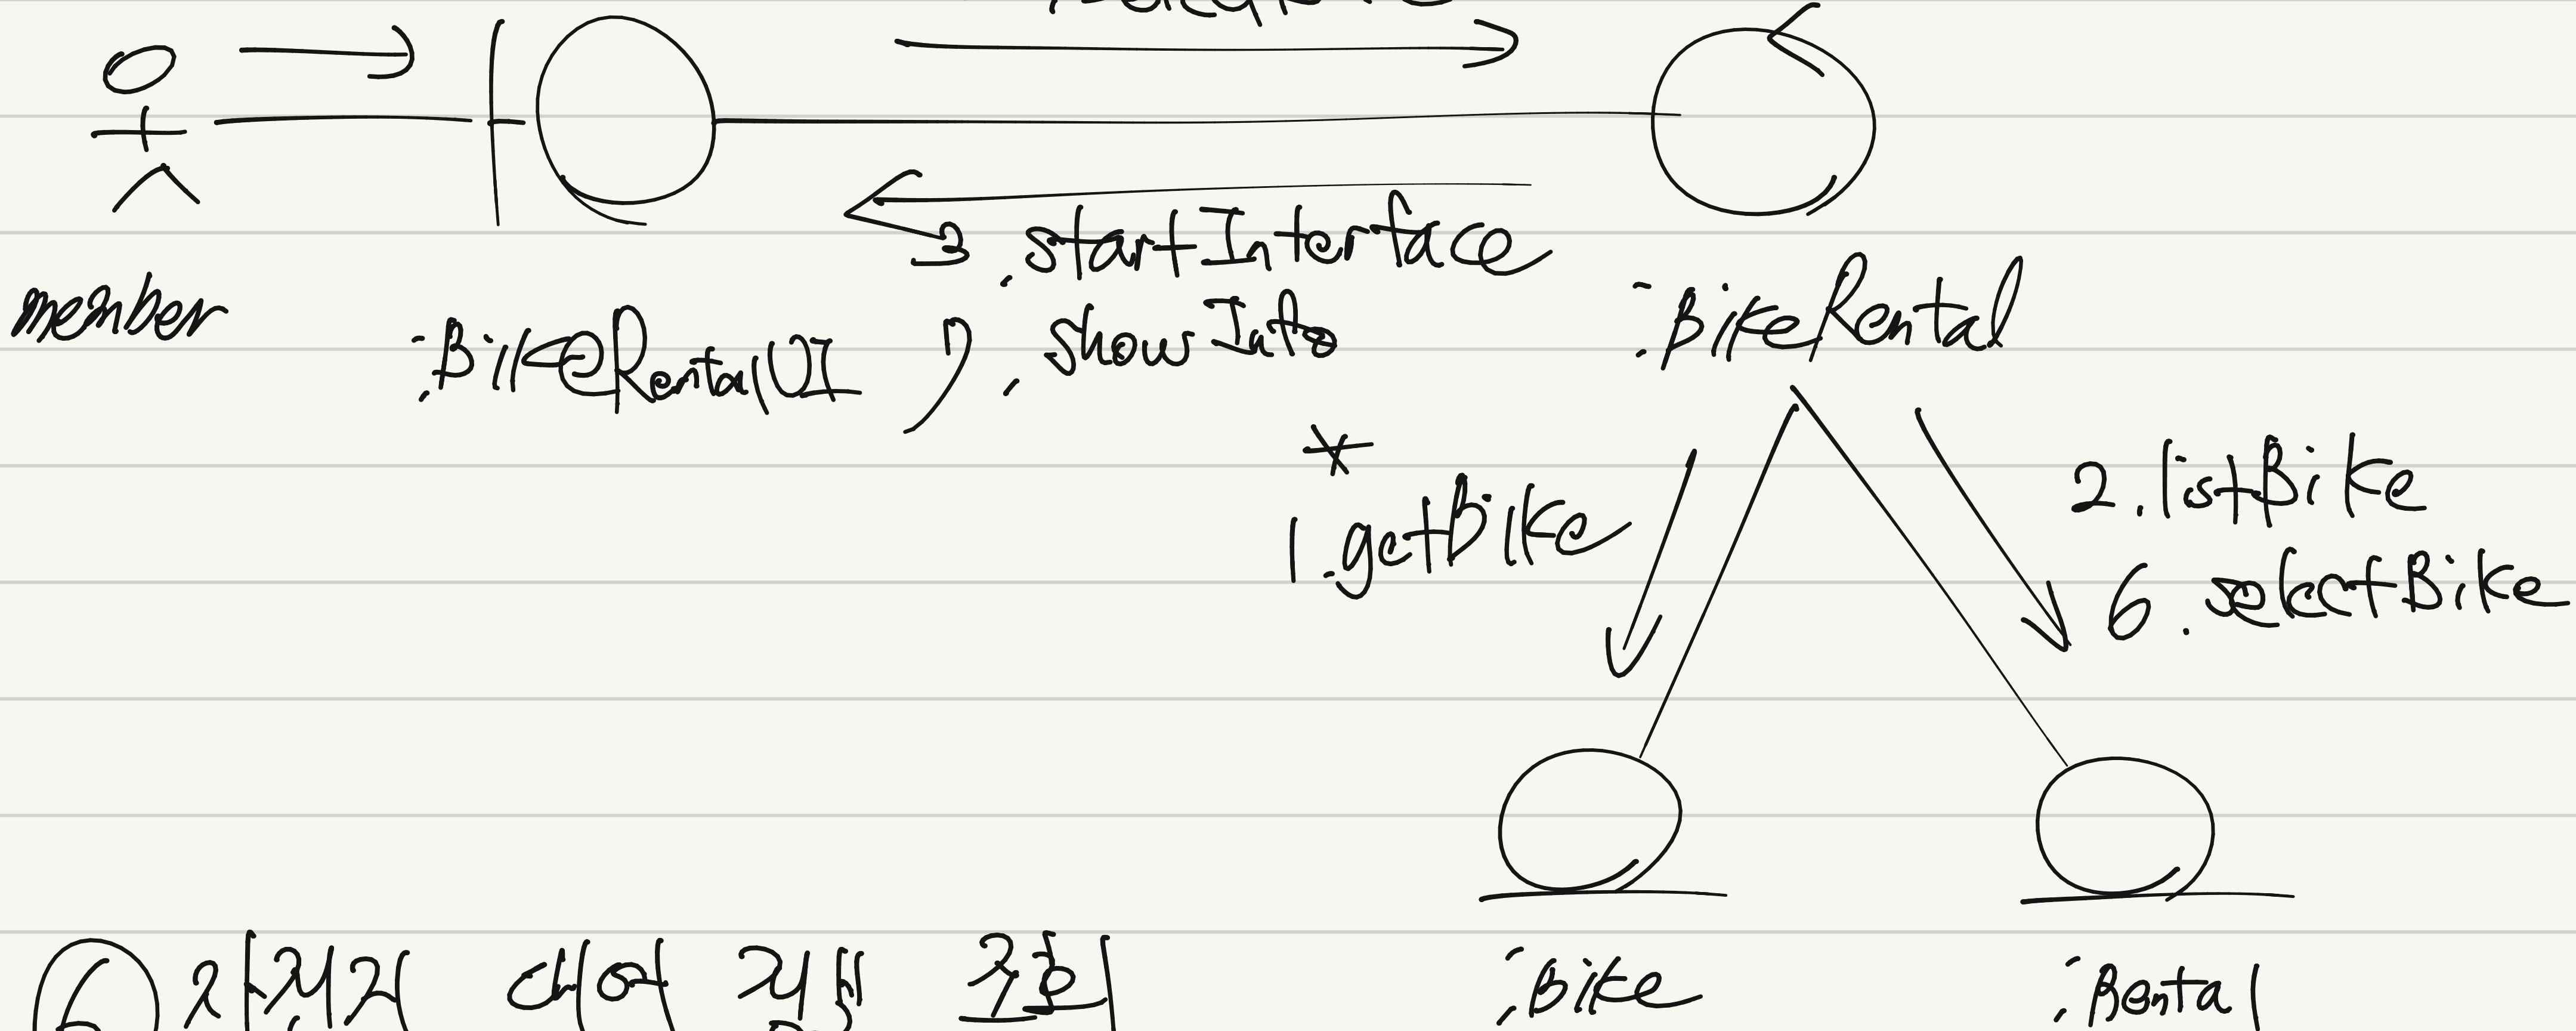 3. startInterface
member
:BikeRentalUI
7. showInfo
:BikeRental
*
1. getBike
2. listBike
6. selectBike
:Bike
:Rental
6 자전거 대여 정보 조회